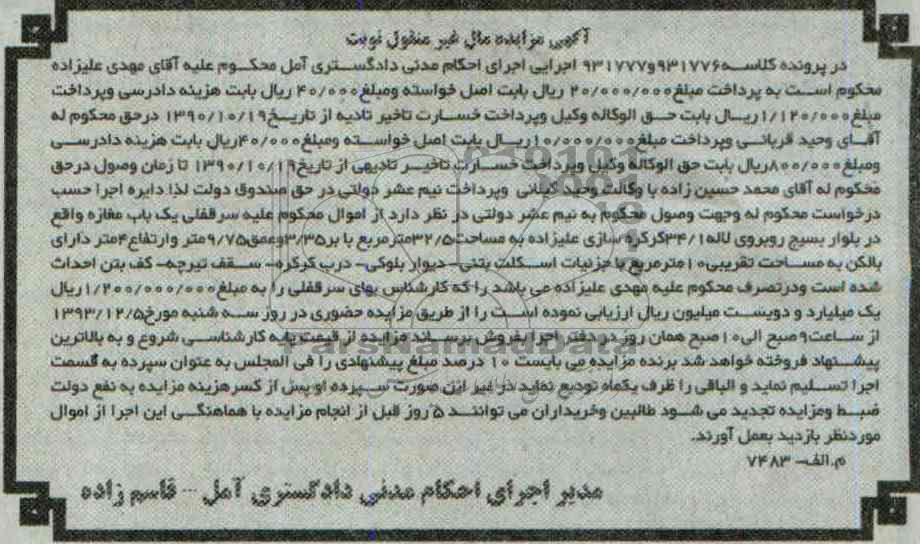 آگهی مزایده مال غیر منقول نوبت
در پرونده کلاسه ۹۳۱۷۷۶و۹۳۱۷۷۷ اجرایی اجرای احکام مدنی دادگستری آمل محکوم علیه آقای مهدی علیزاده
محکوم است به پرداخت مبلغ ۲۰/۰۰۰/۰۰۰ ریال بابت اصل خواسته ومبلغ ۴۰/۰۰۰ ریال بابت هزینه دادرسی وپرداخت
مبلغ ۱/۱۲۰/۰۰۰ ریال بابت حق الوکاله وکیل وپرداخت خسارت تاخیر تادیه از تاریخ ۱۳۹۰/۱۰/۱۹ درحق محکوم له
آقای وحید قربانی وپرداخت مبلغ ۱۰/۰۰۰/۰۰۰ریال بابت اصل خواسته ومبلغ ۴۰/۰۰۰ریال بابت هزینه دادرسی
ومبلغ ۸۰۰/۰۰۰ریال بابت حق الوکاله وکیل وپرداخت خسارت تاخیر تادیهی از تاریخ ۱۳۹۰/۱۰/۱۹ تا زمان وصول درحق
محکوم له آقای محمد حسین زاده با وکالت وحید کیلانی وپرداخت نیم عشر دولتی در حق صندوق دولت لذا دایره اجرا حسب
درخواست محکوم له وجهت وصول محکوم به نیم عشر دولتی در نظر دارد از اموال محکوم علیه سرقفلی یک باب مغازه واقع
در بلوار بسیج روبروی لاله۳۴/۱کرکره سازی علیزاده به مساحت۳۲/۵مترمربع با بر۳/۳۵وعمق۹/۷۵متر وارتفاع۴متر دارای
بالکن به مساحت تقریبی۱۰مترمربع با جزئیات اسکلت بتنی- دیوار بلوکی- درب کرکره- سقف تیرچه- کف بتن احداث
شده است ودرتصرف محکوم علیه مهدی علیزاده می باشد را که کارشناس بهای سرقفلی را به مبلغ ۱/۲۰۰/۰۰۰/۰۰۰ریال
یک میلیارد و دویست میلیون ریال ارزیابی نموده است را از طریق مزایده حضوری در روز سه شنبه مورخ۱۳۹۳/۱۲/۵
از ساعت۹صبح الی۱۰صبح همان روز در دفتر اجرا بفروش برساند مزایده از قیمت پایه کارشناسی شروع و به بالاترین
پیشنهاد فروخته خواهد شد برنده مزایده می بایست ۱۰ درصد مبلغ پیشنهادی را فی المجلس به عنوان سپرده به قسمت
اجرا تسلیم نماید و الباقی را ظرف یکماه تودیع نماید در غیر این صورت سپرده او پس از کسر هزینه مزایده به نفع دولت
ضبط ومزایده تجدید می شود طالبین وخریداران می توانند ۵روز قبل از انجام مزایده با هماهنگی این اجرا از اموال
موردنظر بازدید بعمل آورند.
م.الف- ۷۴۸۳
مدیر اجرای احکام مدنی دادگستری آمل -- قاسم زاده